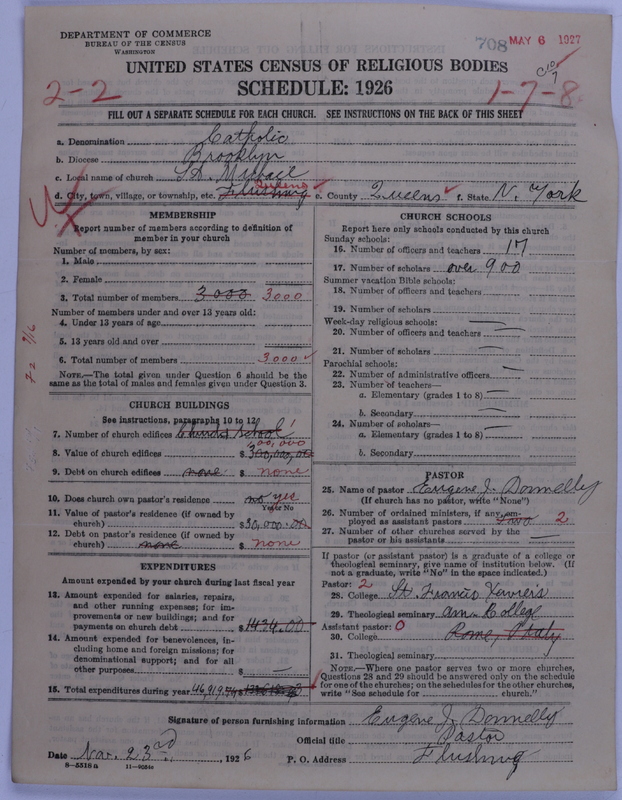 DEPARTMENT OF COMMERCE
BUREAU OF THE CENSUS
WASHINGTON
708 MAY 6 1927
UNITED STATES CENSUS OF RELIGIOUS BODIES
SCHEDULE: 1926
2-2
1-7-8
FILL OUT A SEPARATE SCHEDULE FOR EACH CHURCH. SEE INSTRUCTIONS ON THE BACK OF THIS SHEET
a. Denomination Catholic
b. Diocese Brooklyn
c. Local name of church St. Michael
d. City, town, village, or township, etc. Flushing Queens e. County Queens f. State N. York
MEMBERSHIP
Report number of members according to definition of member in your church
Number of members, by sex:
1. Male
2. Female
3. Total number of members 3000 3000
Number of members under and over 13 years old:
4. Under 13 years of age
5. 13 years old and over
6. Total number of members 3000
NOTE.—The total given under Question 6 should be the same as the total of males and females given under Question 3.
CHURCH BUILDINGS
See instructions, paragraphs 10 to 12
7. Number of church edifices Church & School 1
8. Value of church edifices $300,000.00
9. Debt on church edifices none $ none
10. Does church own pastor's residence no yes
Yes or No
11. Value of pastor's residence (if owned by church) $30,000.00
12. Debt on pastor's residence (if owned by church) none $ none
EXPENDITURES
Amount expended by your church during last fiscal year
13. Amount expended for salaries, repairs, and other running expenses; for improvements or new buildings; and for payments on church debt $1424.00
14. Amount expended for benevolences, including home and foreign missions; for denominational support; and for all other purposes $ —
15. Total expenditures during year 46,919.74
CHURCH SCHOOLS
Report here only schools conducted by this church
Sunday schools:
16. Number of officers and teachers 17
17. Number of scholars over 900
Summer vacation Bible schools:
18. Number of officers and teachers
19. Number of scholars
Week-day religious schools: —
20. Number of officers and teachers —
21. Number of scholars —
Parochial schools:
22. Number of administrative officers —
23. Number of teachers—
a. Elementary (grades 1 to 8) —
b. Secondary —
24. Number of scholars—
a. Elementary (grades 1 to 8) —
b. Secondary
PASTOR
25. Name of pastor Eugene J. Donnelly
(If church has no pastor, write "None")
26. Number of ordained ministers, if any, employed as assistant pastors 2
27. Number of other churches served by the pastor or his assistants —
If pastor (or assistant pastor) is a graduate of a college or theological seminary, give name of institution below. (If not a graduate, write "No" in the space indicated.)
Pastor: 2
28. College St. Francis Xavier's
29. Theological seminary Am. College
Assistant pastor: 0
30. College Rome, Italy
31. Theological seminary
NOTE.—Where one pastor serves two or more churches, Questions 28 and 29 should be answered only on the schedule for one of the churches; on the schedules for the other churches, write "See schedule for church."
Signature of person furnishing information Eugene J. Donnelly
Official title Pastor
Date Nov. 23rd, 1926 P. O. Address Flushing
8-5518a 11-9054